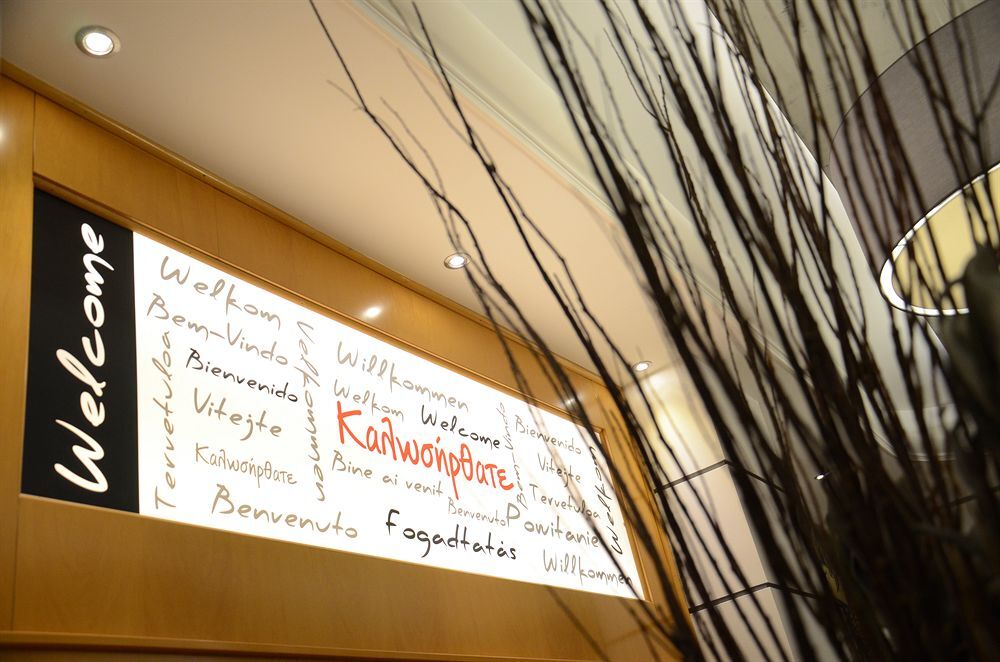 Welcome
Welkom
Bem-Vindo
Bienvenido
Vitejte
Καλωσήρθατε
Benvenuto
Tervetuloa
Willkommen
Welkom
Welcome
Καλωσήρθατε
Bine ai venit
Benvenuto
Fogadtatás
Bienvenido
Vitejte
Tervetuloa
Powitanie
Willkommen
Welkom